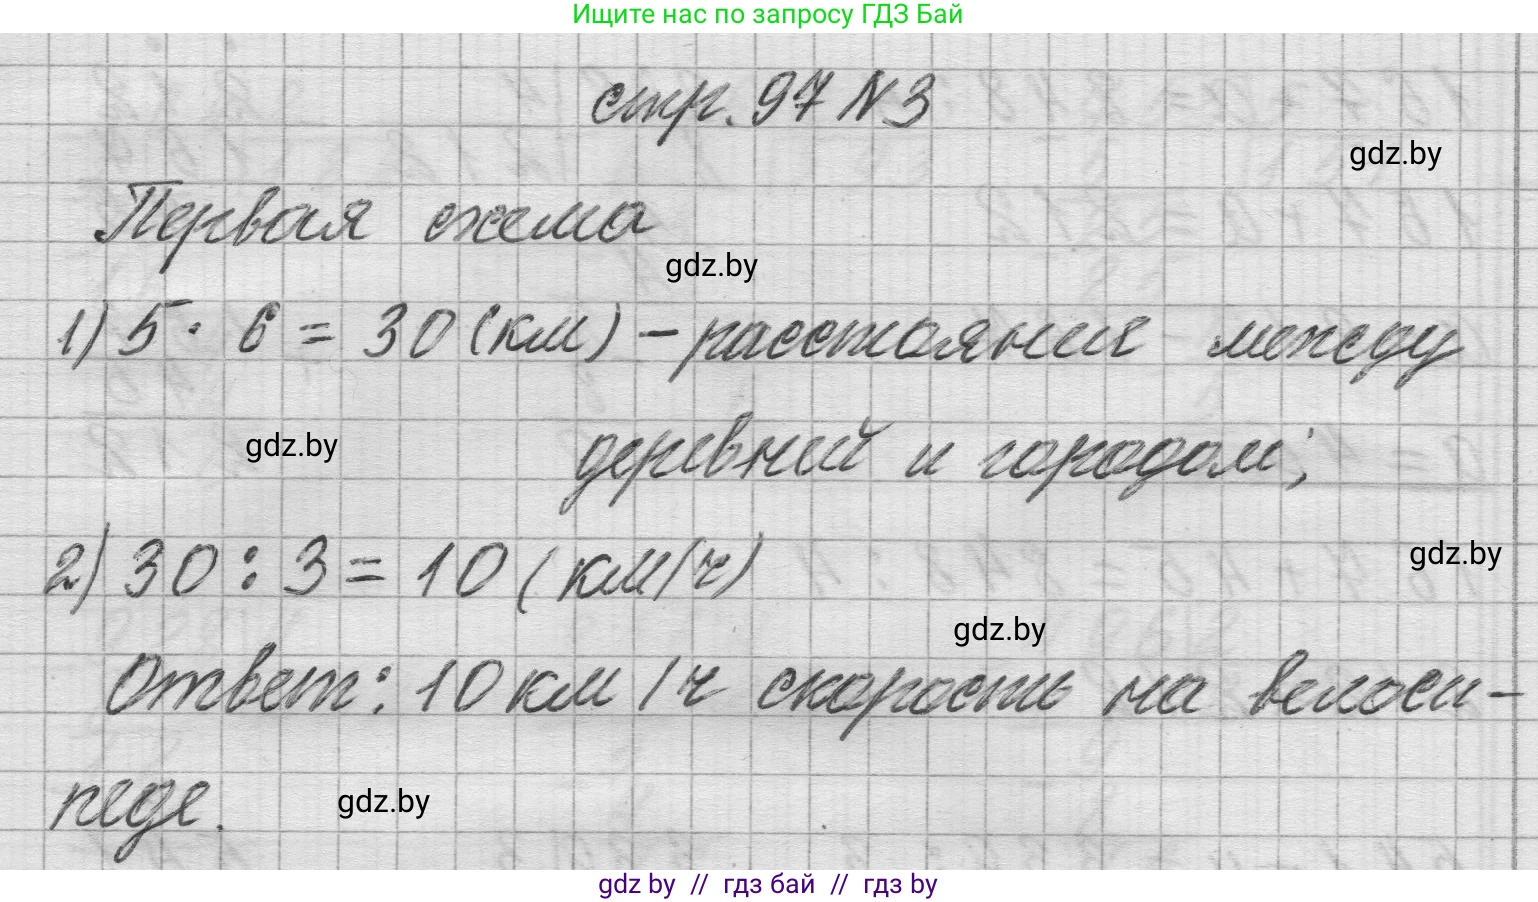 Ищите нас по запросу ГДЗ Бай
стр. 97 N3
gdz.by
Первая схема
gdz.by
1) 5 · 6 = 30 (км) - расстояния между
gdz.by
деревней и городом;
2) 30 : 3 = 10 (км/ч)
gdz.by
gdz.by
Ответ: 10 км/ч скорость на велоси-
педе.
gdz.by
gdz by // гдз бай // гдз by